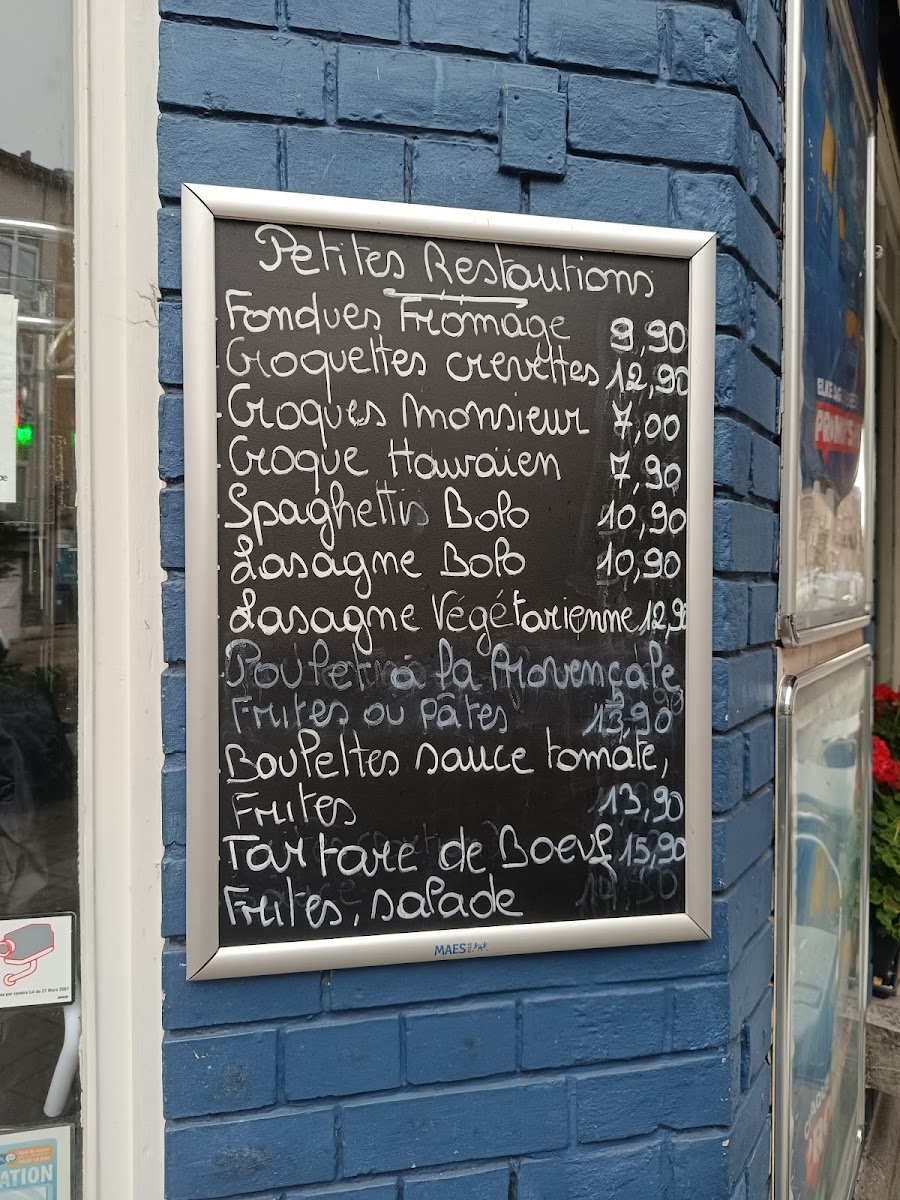 Petites Restautions
Fondues Fromage 9,90
Croquettes crevettes 12,90
Croques monsieur 7,00
Croque Hawaïen 7,90
Spaghettis Bolo 10,90
Lasagne Bolo 10,90
Lasagne Végétarienne 12,9
Poulet à la Provençale,
Frites ou Pâtes 13,90
Boulettes sauce tomate,
Frites 13,90
Tartare de Boeuf 15,90
Frites, salade
MAES
ATION